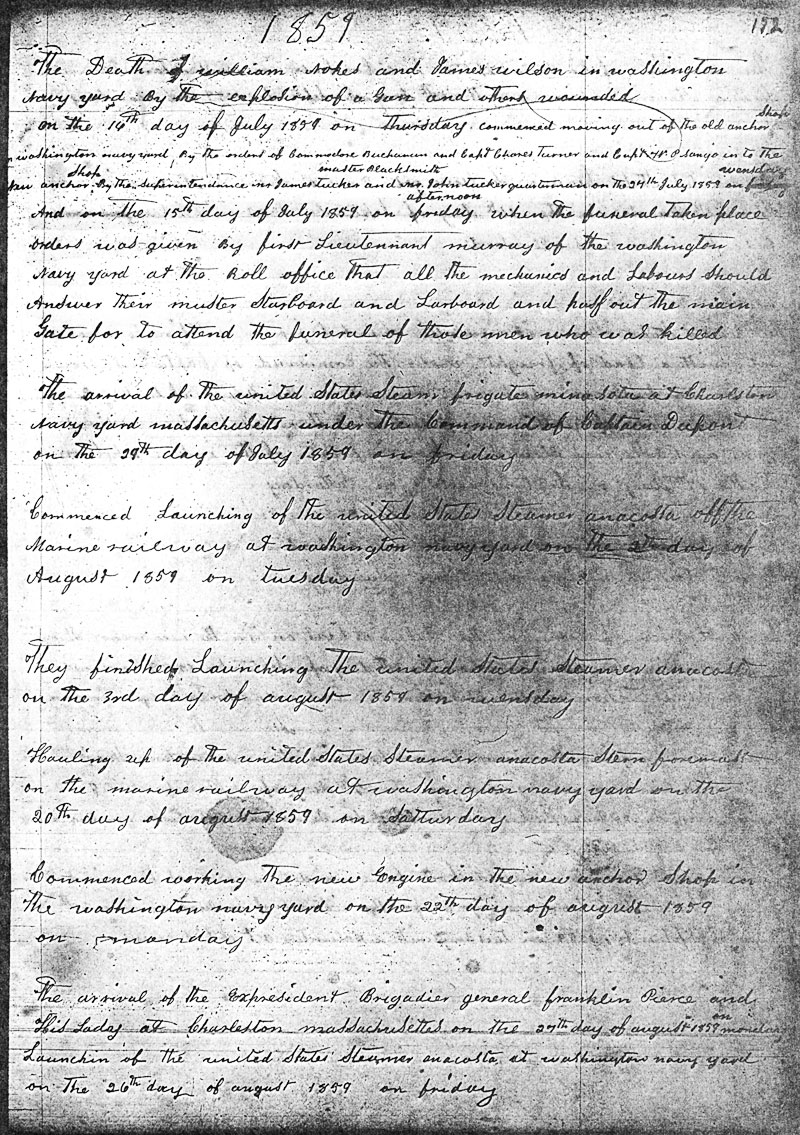 1859
122
The Death of william Nokes and James wilson in washington
Navy yard By the explosion of a Gun and others wounded
on the 14th day of July 1859 on Thursday commenced moving out of the old anchor Shop
washington navy yard By the orders of Commodore Buchanan and Capt Chares Turner and Capt in to the
new anchor Shop By the Superintendance mr James tucker and master Blacksmith mr John tucker quarterman on the 24th July 1859 on wensday
And on the 15th day of July 1859 on friday afternoon when the funeral Taken place
orders was given By first Lieutennant murray of the washington
Navy yard at the Roll office that all the mechanics and Labours Should
Answer their muster Starboard and Larboard and pass out the main
Gate for to attend the funeral of those men who was killed
The arrival of the united States Steam frigate minasota at Charlston
Navy yard massachusetts under the Command of Captain Dupont
on the 29th day of July 1859 on friday
Commenced Launching of the united States Steamer anacosta off the
Marine railway at washington navy yard on the 2th day of
August 1859 on tuesday
They finished Launching The united States Steamer anacosta
on the 3rd day of august 1859 on wensday
Hauling up of the united States Steamer anacosta Stern foremost
on the marine railway at washington navy yard on the
20th day of august 1859 on Satturday
Commenced working the new Engine in the new anchor Shop in
the washington navy yard on the 22th day of august 1859
on monday
The arrival of the Expresident Brigadier general franklin Pierce and
His Lady at Charleston massachusettes on the 27th day of august 1859 on monday
Launchin of the united States Steamer anacosta at washington navy yard
on The 26th day of august 1859 on friday